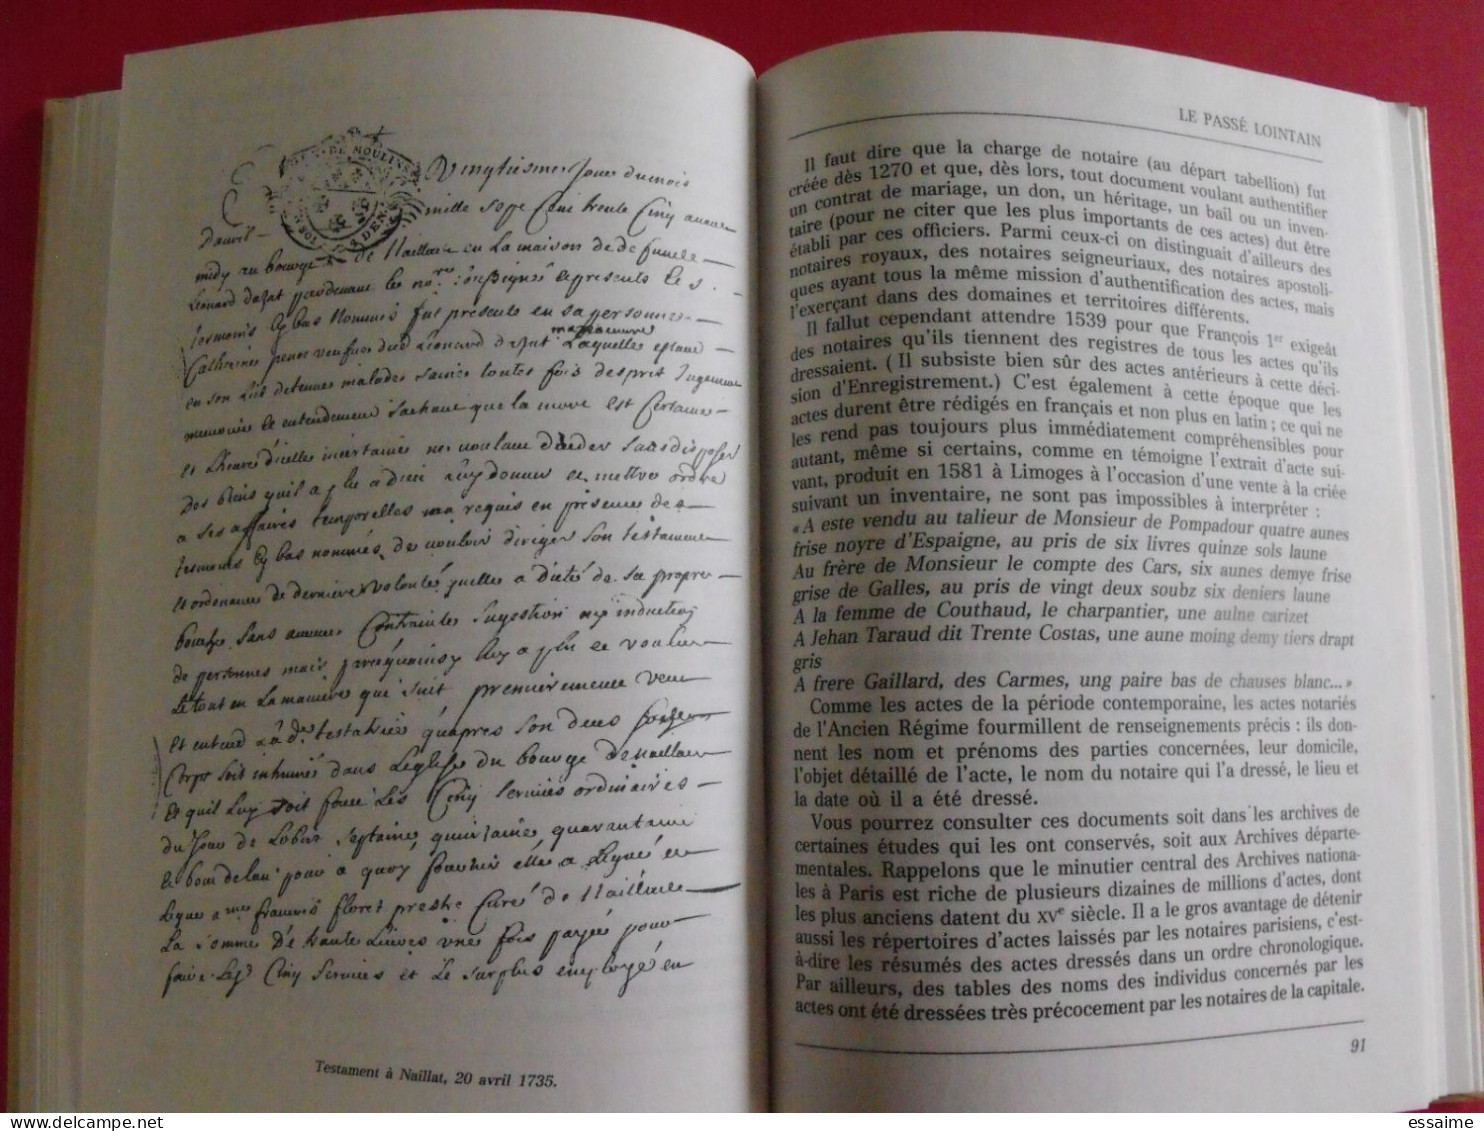 DE MOULINS
Vingtiesme Jour du mois
mille sept Cent trente Cinq avant
d'avril
midy au bourg de Naillac en la maison de de funct
Léonard dazat pardevant le no.re soussigné et presents les
tesmoins Cy bas Nommés fut presente en sa personne
mazaurune
Catherine veufve dud Léonard dazat Laquelle estant
en son Lit detenue malade saine toutes fois desprit Jugement
memoire et entendement sachant que la mort est Certaine
et L'heure d'icelle incertaine ne voulant décéder sans disposer
des biens qu'il a plu a dieu Luy donner et mettre ordre
a ses affaires temporelles m'a requis en presence des
tesmoins Cy bas nommés de vouloir diriger son testament
et ordonnance de derniere volonté quelle a dicté de sa propre
bouche sans aucune Contrainte sugestion ny induction
de personnes mais parcequainsy luy a plu et voulu
Le tout en La maniere qui suit premierement veut
et entend Lad. testatrice quapres son deces
Corps soit inhumé dans Leglise du bourg de Naillac
et quil Luy soit fait Les Cinq services ordinaires
du Jour de Lobit septaine quinzaine quarantaine
et bout de lan pour a quoy fournir elle a Legué et
Legue a mre francois floret prestre Curé de Naillac
La somme de trente Livres une fois payée pour
faire Les Cinq services et Le surplus employé en
Testament à Naillat, 20 avril 1735.
LE PASSÉ LOINTAIN
Il faut dire que la charge de notaire (au départ tabellion) fut
créée dès 1270 et que, dès lors, tout document voulant authentifier
un contrat de mariage, un don, un héritage, un bail ou un inven-
taire (pour ne citer que les plus importants de ces actes) dut être
établi par ces officiers. Parmi ceux-ci on distinguait d'ailleurs des
notaires royaux, des notaires seigneuriaux, des notaires apostoli-
ques ayant tous la même mission d'authentification des actes, mais
l'exerçant dans des domaines et territoires différents.
Il fallut cependant attendre 1539 pour que François 1er exigeât
des notaires qu'ils tiennent des registres de tous les actes qu'ils
dressaient. (Il subsiste bien sûr des actes antérieurs à cette déci-
sion d'Enregistrement.) C'est également à cette époque que les
actes durent être rédigés en français et non plus en latin ; ce qui ne
les rend pas toujours plus immédiatement compréhensibles pour
autant, même si certains, comme en témoigne l'extrait d'acte sui-
vant, produit en 1581 à Limoges à l'occasion d'une vente à la criée
suivant un inventaire, ne sont pas impossibles à interpréter :
« A este vendu au talieur de Monsieur de Pompadour quatre aunes
frise noyre d'Espaigne, au pris de six livres quinze sols laune
Au frère de Monsieur le compte des Cars, six aunes demye frise
grise de Galles, au pris de vingt deux soubz six deniers laune
A la femme de Couthaud, le charpantier, une aulne carizet
A Jehan Taraud dit Trente Costas, une aune moing demy tiers drapt
gris
A frere Gaillard, des Carmes, ung paire bas de chauses blanc... »
Comme les actes de la période contemporaine, les actes notariés
de l'Ancien Régime fourmillent de renseignements précis : ils don-
nent les nom et prénoms des parties concernées, leur domicile,
l'objet détaillé de l'acte, le nom du notaire qui l'a dressé, le lieu et
la date où il a été dressé.
Vous pourrez consulter ces documents soit dans les archives de
certaines études qui les ont conservés, soit aux Archives départe-
mentales. Rappelons que le minutier central des Archives nationa-
les à Paris est riche de plusieurs dizaines de millions d'actes, dont
les plus anciens datent du XVe siècle. Il a le gros avantage de détenir
aussi les répertoires d'actes laissés par les notaires parisiens, c'est-
à-dire les résumés des actes dressés dans un ordre chronologique.
Par ailleurs, des tables des noms des individus concernés par les
actes ont été dressées très précocement par les notaires de la capitale.
91
www.delcampe.net
essaime